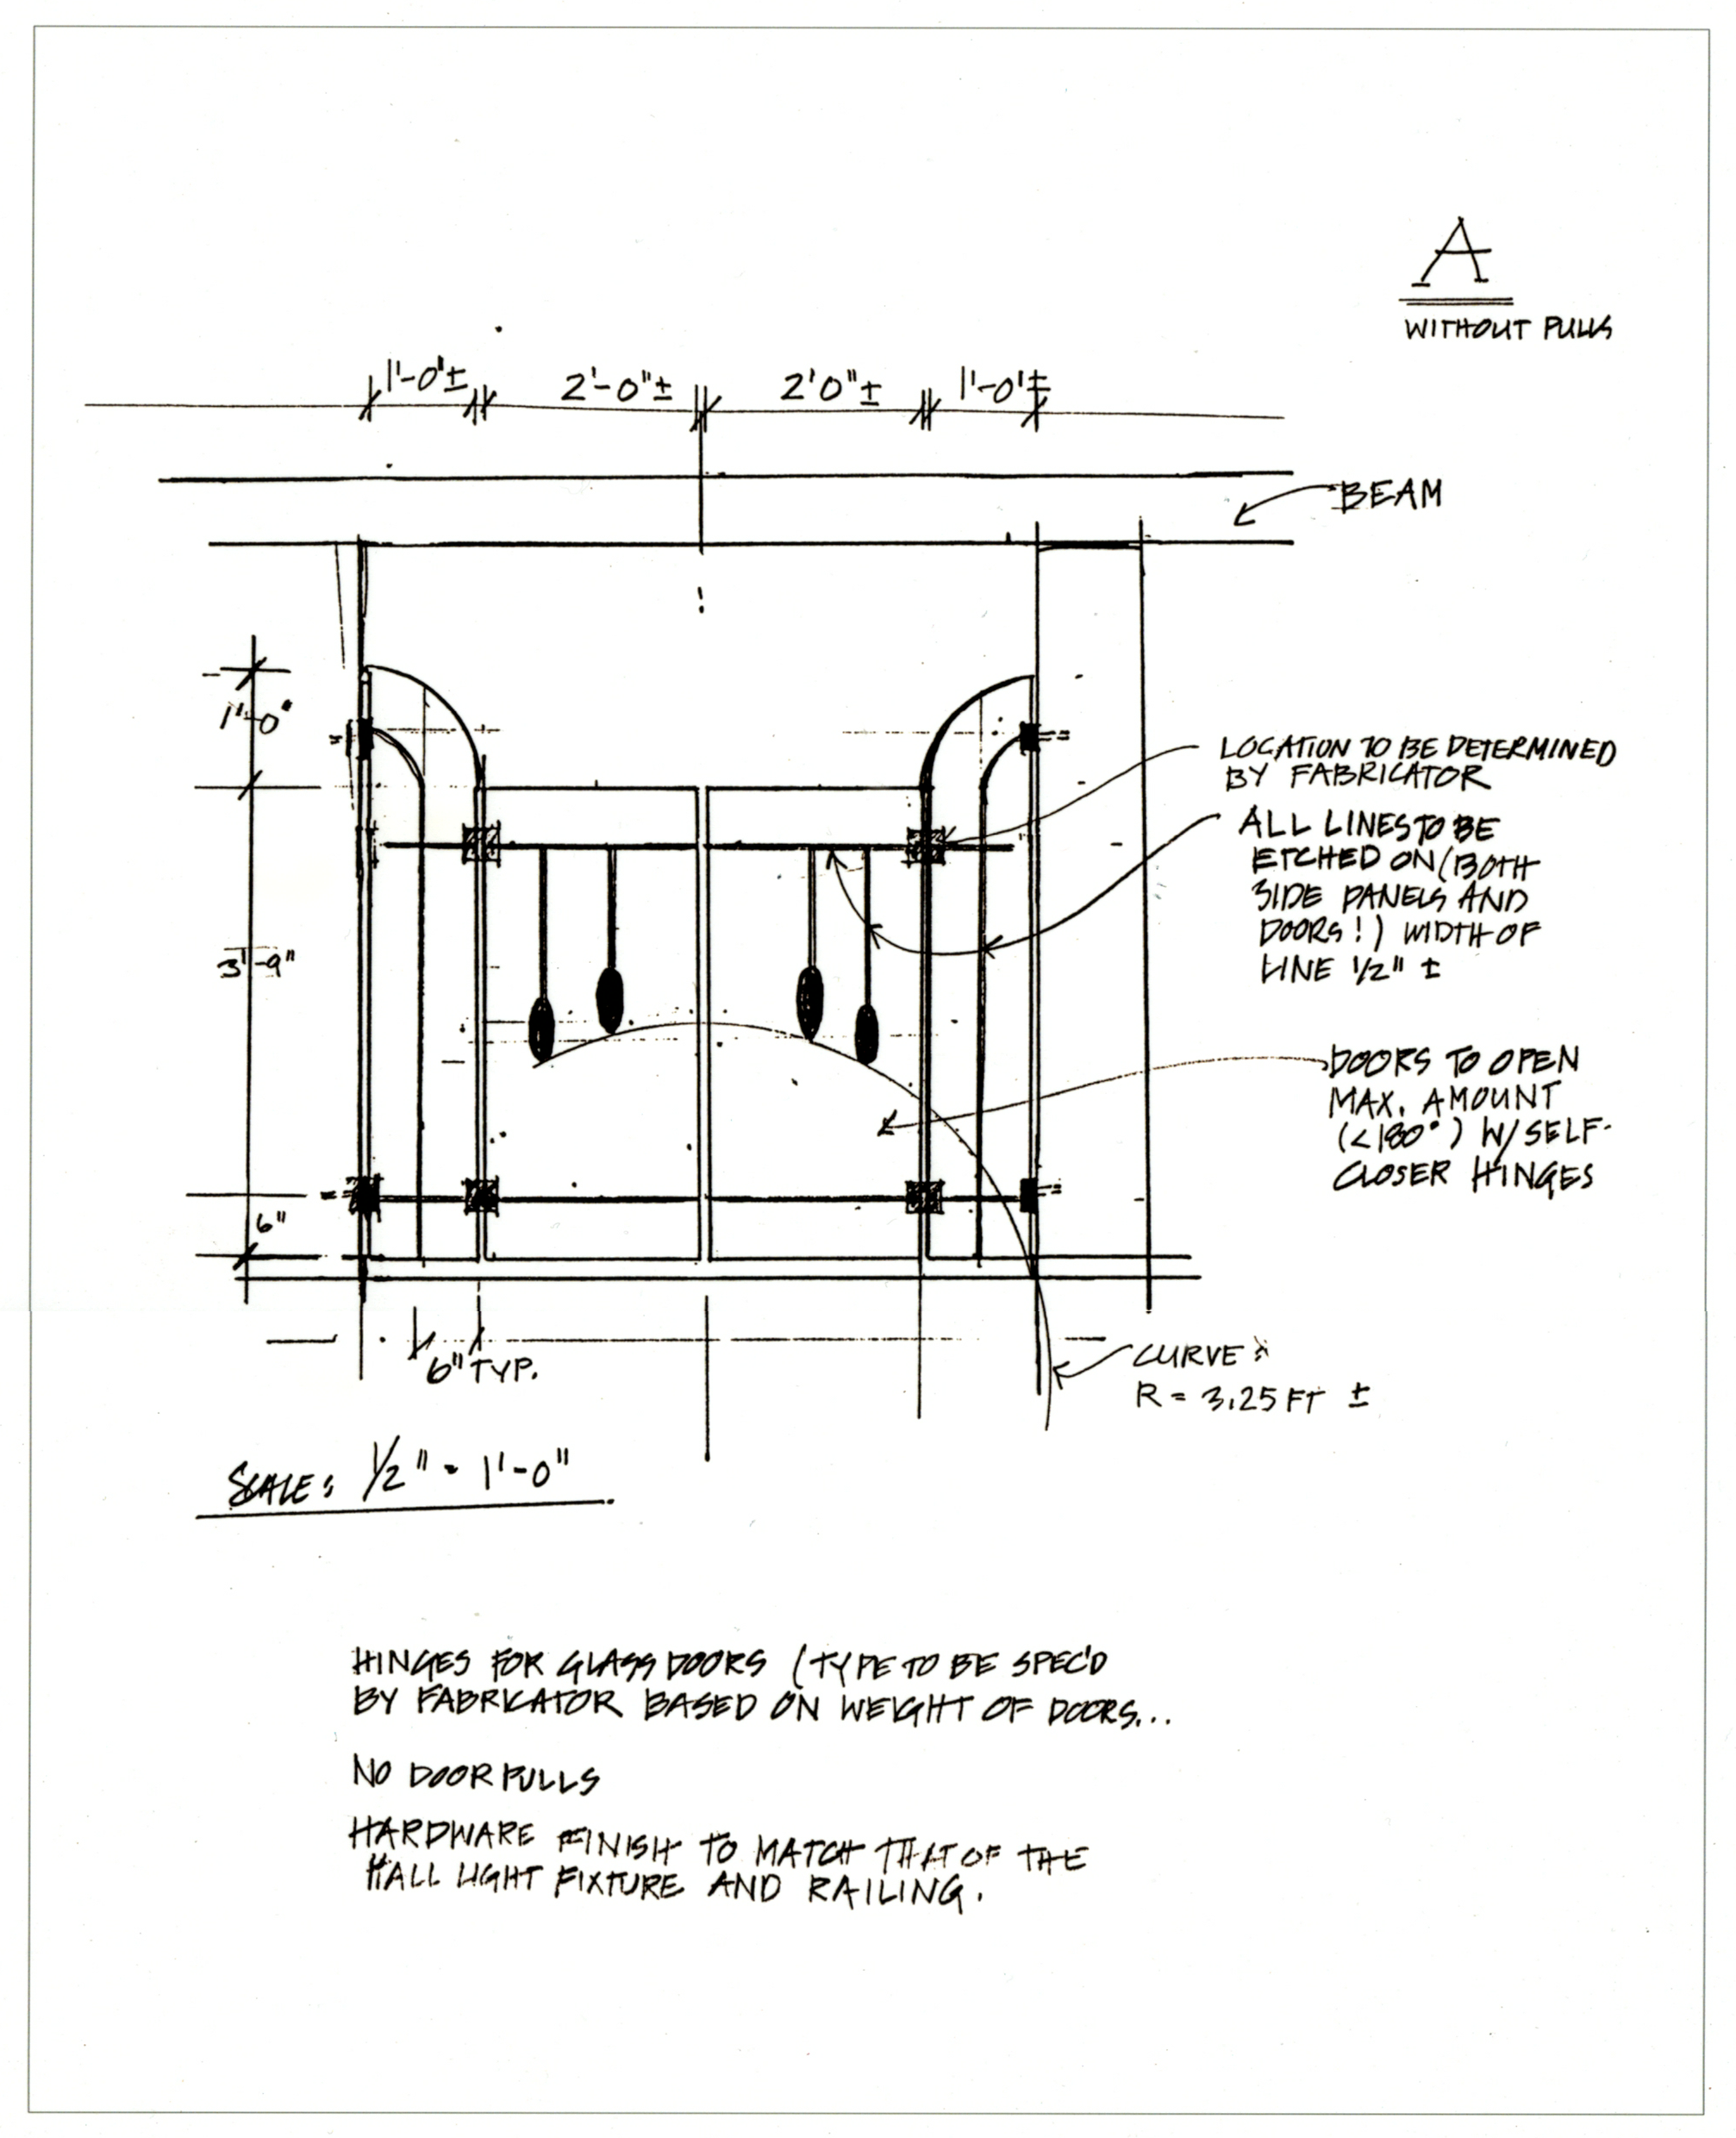 A
WITHOUT PULLS
1'-0"±
2'-0"±
2'0"±
1'-0"±
BEAM
1'-0"
LOCATION TO BE DETERMINED
BY FABRICATOR
ALL LINES TO BE
ETCHED ON (BOTH
SIDE PANELS AND
DOORS!) WIDTH OF
LINE 1/2" ±
3'-9"
DOORS TO OPEN
MAX. AMOUNT
(<180°) W/ SELF-
CLOSER HINGES
6"
6" TYP.
CURVE:
R = 3.25 FT ±
SCALE: 1/2" = 1'-0"
HINGES FOR GLASS DOORS (TYPE TO BE SPEC'D
BY FABRICATOR BASED ON WEIGHT OF DOORS...
NO DOOR PULLS
HARDWARE FINISH TO MATCH THAT OF THE
HALL LIGHT FIXTURE AND RAILING.